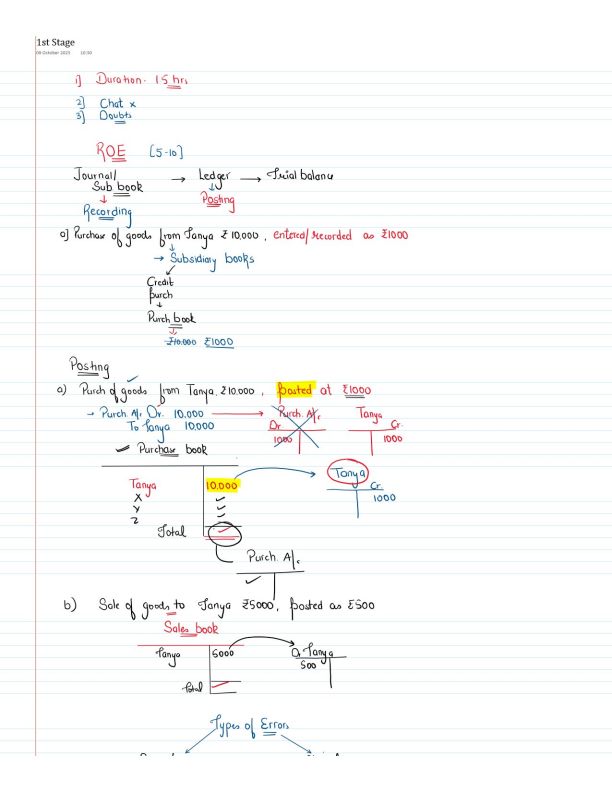 1st Stage
08 October 2025 10:30
1] Duration- 1.5 hrs
2] Chat x
3] Doubts
ROE [5-10]
Journal/ → Ledger → Trial balance
Sub book ↓
↓ Posting
Recording
a] Purchase of goods from Tanya ₹10,000, entered/recorded as ₹1000
→ Subsidiary books
Credit
purch
↓
Purch book
↓
₹10,000 ₹1000
Posting
a) Purch of goods from Tanya ₹10,000, posted at ₹1000
→ Purch. A/c Dr. 10,000 → Purch. A/c Tanya
To Tanya 10,000 Dr. Cr.
1000 1000
✓ Purchase book
Tanya 10,000 Tanya
X ✓ Cr
Y ✓ 1000
Z ✓
Total ✓
Purch. A/c
✓
b) Sale of goods to Tanya ₹5000, posted as ₹500
Sales book
Tanya 5000 Dr Tanya
500
Total
Types of Errors